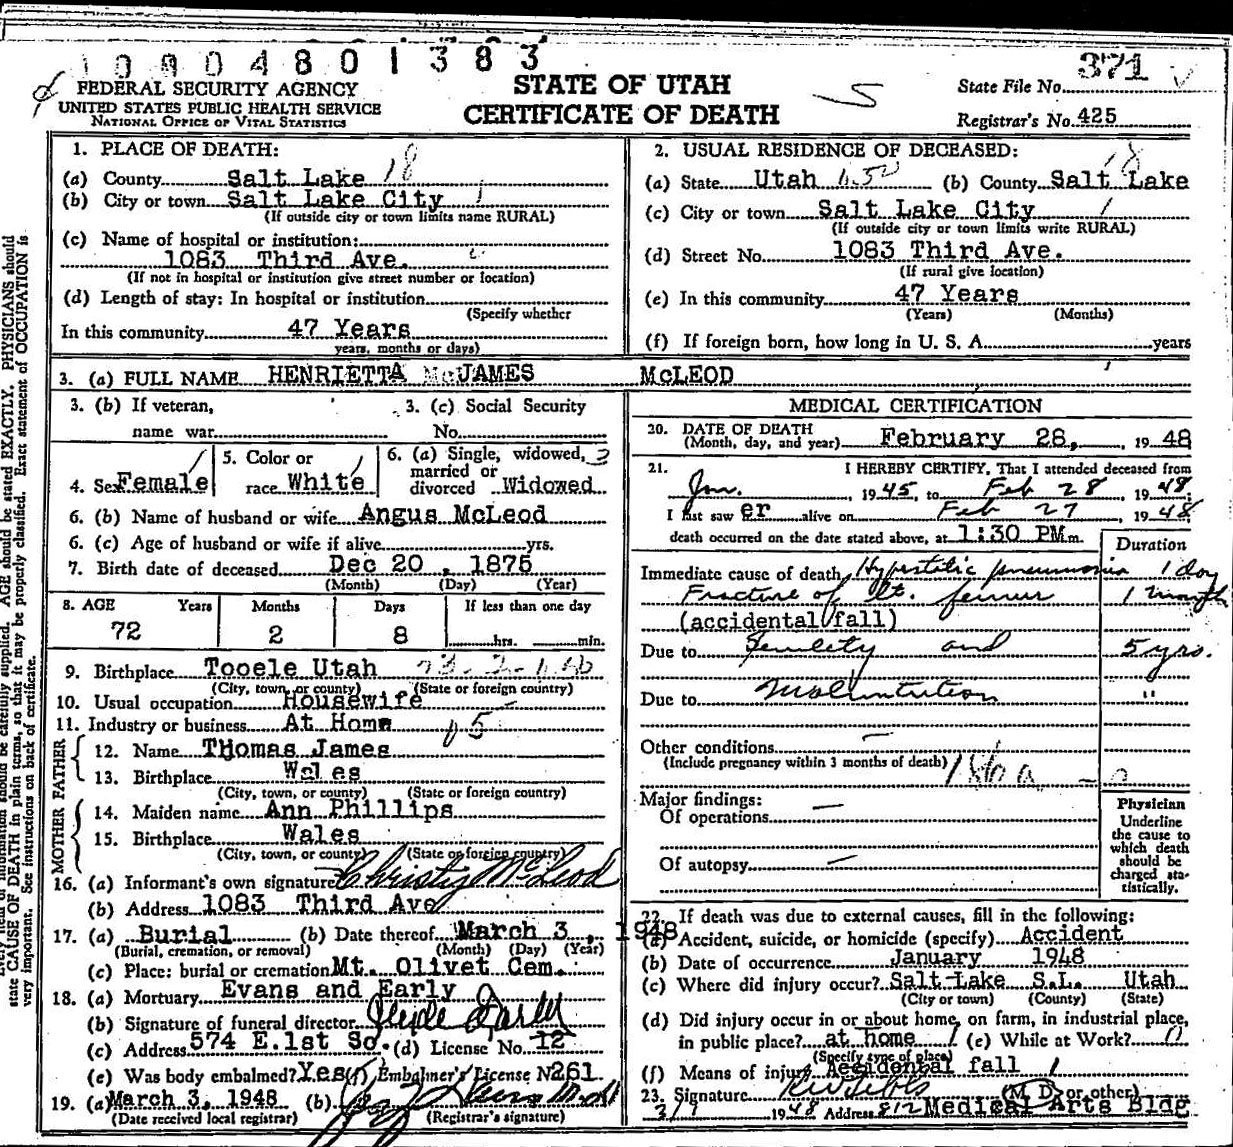 1000 4801383
371
FEDERAL SECURITY AGENCY
UNITED STATES PUBLIC HEALTH SERVICE
NATIONAL OFFICE OF VITAL STATISTICS
STATE OF UTAH
CERTIFICATE OF DEATH
State File No.
Registrar's No. 425
1. PLACE OF DEATH:
(a) County Salt Lake 18
(b) City or town Salt Lake City 1
(If outside city or town limits name RURAL)
(c) Name of hospital or institution:
1083 Third Ave.
(If not in hospital or institution give street number or location)
(d) Length of stay: In hospital or institution
(Specify whether
In this community 47 Years
years, months or days)
2. USUAL RESIDENCE OF DECEASED:
18
(a) State Utah (b) County Salt Lake
(c) City or town Salt Lake City 1
(If outside city or town limits write RURAL)
(d) Street No. 1083 Third Ave.
(If rural give location)
(e) In this community 47 Years
(Years) (Months)
(f) If foreign born, how long in U. S. A. years
3. (a) FULL NAME HENRIETTA JAMES McLEOD
3. (b) If veteran,
name war
3. (c) Social Security
No.
4. Sex Female
5. Color or
race White
6. (a) Single, widowed,
married or
divorced Widowed
6. (b) Name of husband or wife Angus McLeod
6. (c) Age of husband or wife if alive yrs.
7. Birth date of deceased Dec 20, 1875
(Month) (Day) (Year)
8. AGE Years Months Days If less than one day
72 2 8 hrs. min.
9. Birthplace Tooele Utah
(City, town, or county) (State or foreign country)
10. Usual occupation Housewife
11. Industry or business At Home
FATHER
12. Name Thomas James
13. Birthplace Wales
(City, town, or county) (State or foreign country)
MOTHER
14. Maiden name Ann Phillips
15. Birthplace Wales
(City, town, or county) (State or foreign country)
16. (a) Informant's own signature Christy McLeod
(b) Address 1083 Third Ave
17. (a) Burial (b) Date thereof March 3, 1948
(Burial, cremation, or removal) (Month) (Day) (Year)
(c) Place: burial or cremation Mt. Olivet Cem.
18. (a) Mortuary Evans and Early
(b) Signature of funeral director
(c) Address 574 E.1st So. (d) License No. 12
(e) Was body embalmed? Yes (f) Embalmer's License No 261
19. (a) March 3, 1948 (b)
(Date received local registrar) (Registrar's signature)
MEDICAL CERTIFICATION
20. DATE OF DEATH
(Month, day, and year) February 28, 1948
21. I HEREBY CERTIFY, That I attended deceased from
Jan. , 1945, to Feb 28, 1948;
I last saw er alive on Feb 27, 1948,
death occurred on the date stated above, at 1:30 PM m.
Duration
Immediate cause of death Hypostatic pneumonia 1 day
Fracture of Rt. femur 1 month
(accidental fall)
Due to Senility and 5 yrs.
Due to Malnutrition "
Other conditions —
(Include pregnancy within 3 months of death) 186a
Major findings:
Of operations —
Of autopsy —
Physician
Underline
the cause to
which death
should be
charged sta-
tistically.
22. If death was due to external causes, fill in the following:
(a) Accident, suicide, or homicide (specify) Accident
(b) Date of occurrence January 1948
(c) Where did injury occur? Salt Lake S.L. Utah
(City or town) (County) (State)
(d) Did injury occur in or about home, on farm, in industrial place,
in public place? at home (e) While at Work?
(Specify type of place)
(f) Means of injury Accidental fall
23. Signature (M. D. or other)
3/1 1948 Address 812 Medical Arts Bldg
AGE should be stated EXACTLY. PHYSICIANS should
state CAUSE OF DEATH in plain terms, so that it may be properly classified. Exact statement of OCCUPATION is
very important. See instructions on back of certificate.